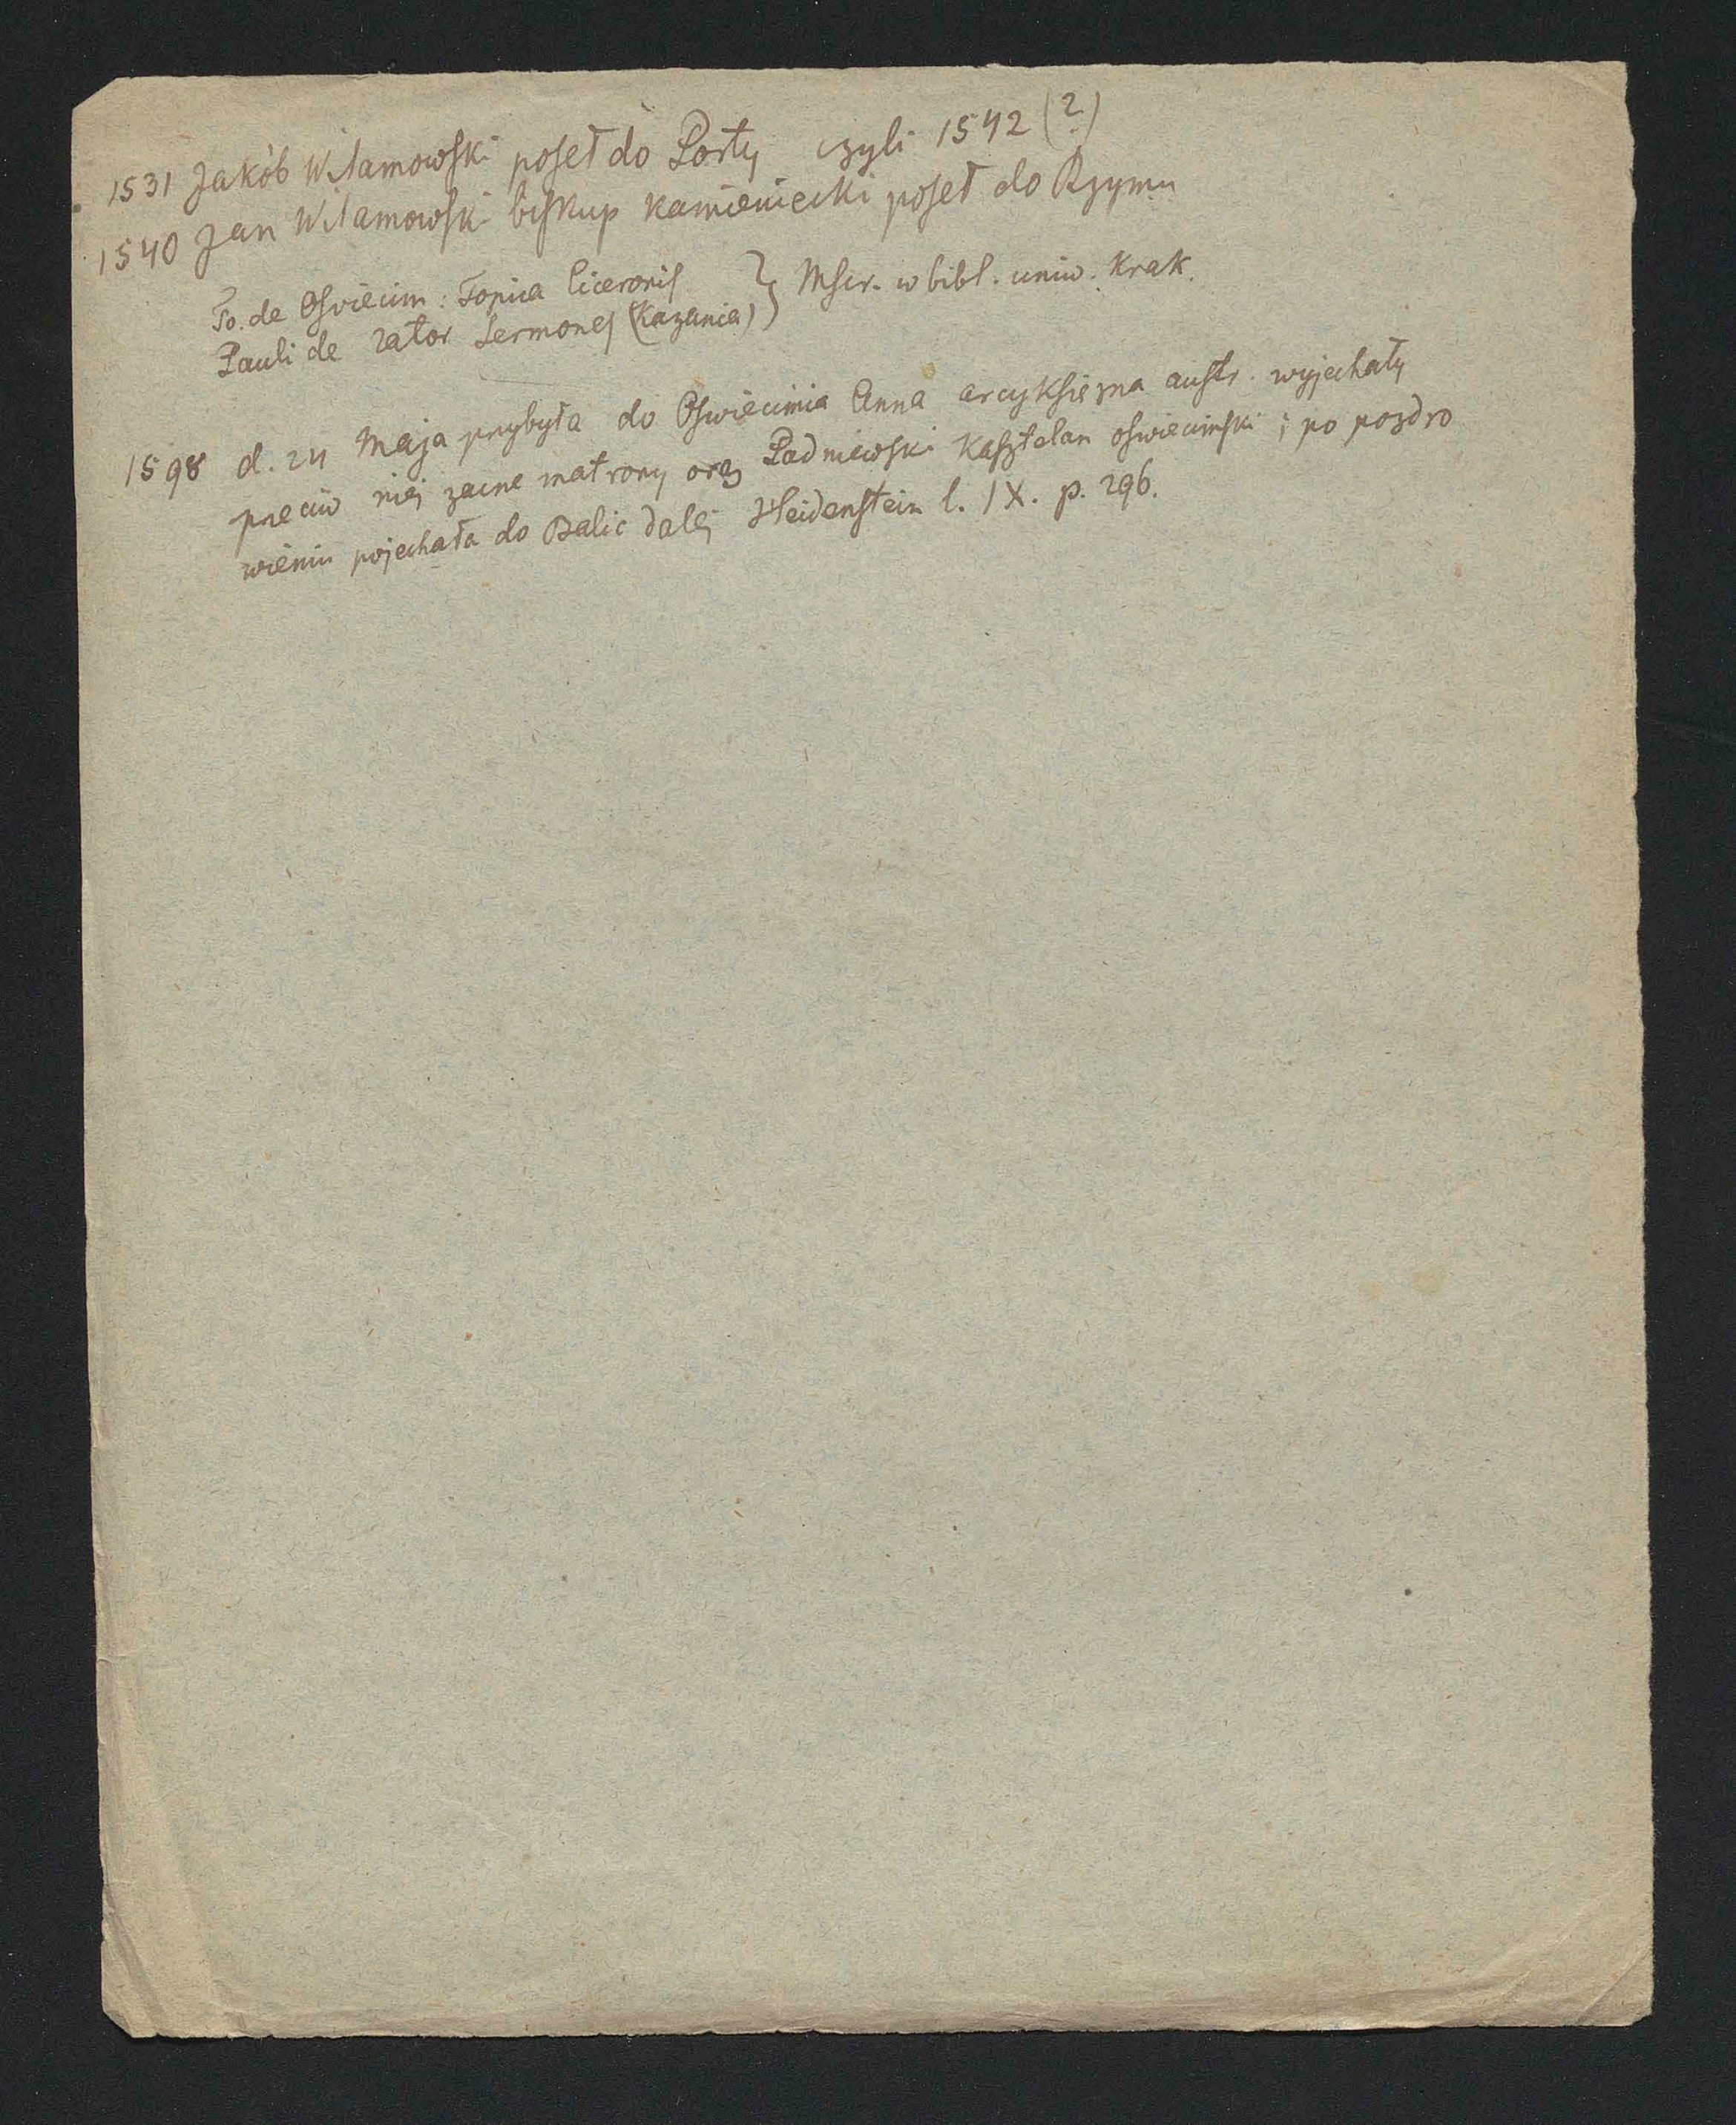 1531 Jakób Wilamowski poseł do Porty czyli 1542 (?)
1540 Jan Wilamowski biskup kamieniecki poseł do Rzymu
Jo. de Osviecim: Topica Ciceronis } Mscr. w bibl. uniw. Krak.
Pauli de Zator Sermones (Kazania) }
1598 d. 24 Maja przybyła do Oświecimia Anna arcyksiezna austr. wyjechały
przeciw niej zacne matrony oraz Padniewski Kasztelan oświecimski i po pozdro
wieniu pojechała do Balic dalej Heidenstein l. IX. p. 296.